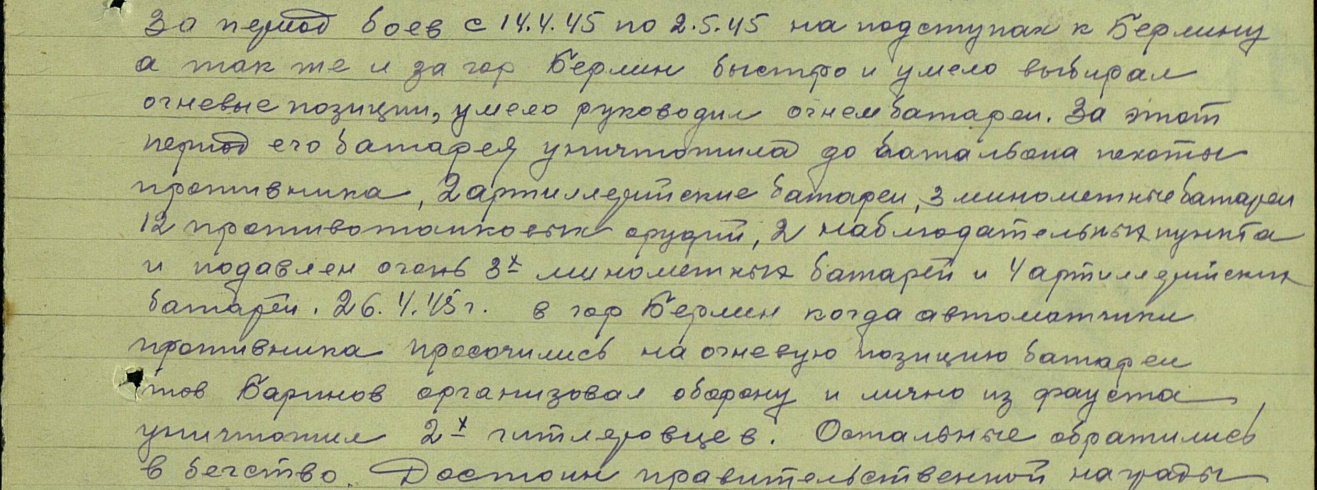 За период боев с 14.4.45 по 2.5.45 на подступах к Берлину
а так же и за гор Берлин быстро и умело выбирал
огневые позиции, умело руководил огнем батареи. За этот
период его батарея уничтожила до батальона пехоты
противника, 2 артиллерийские батареи, 3 минометные батареи
12 противотанковых орудий, 2 наблюдательных пункта
и подавлен огонь 3х минометных батарей и 4 артиллерийских
батарей. 26.4.45г. в гор Берлин когда автоматчики
противника просочились на огневую позицию батареи
тов Баринов организовал оборону и лично из фауста
уничтожил 2х гитлеровцев. Остальные обратились
в бегство. Достоин правительственной награды